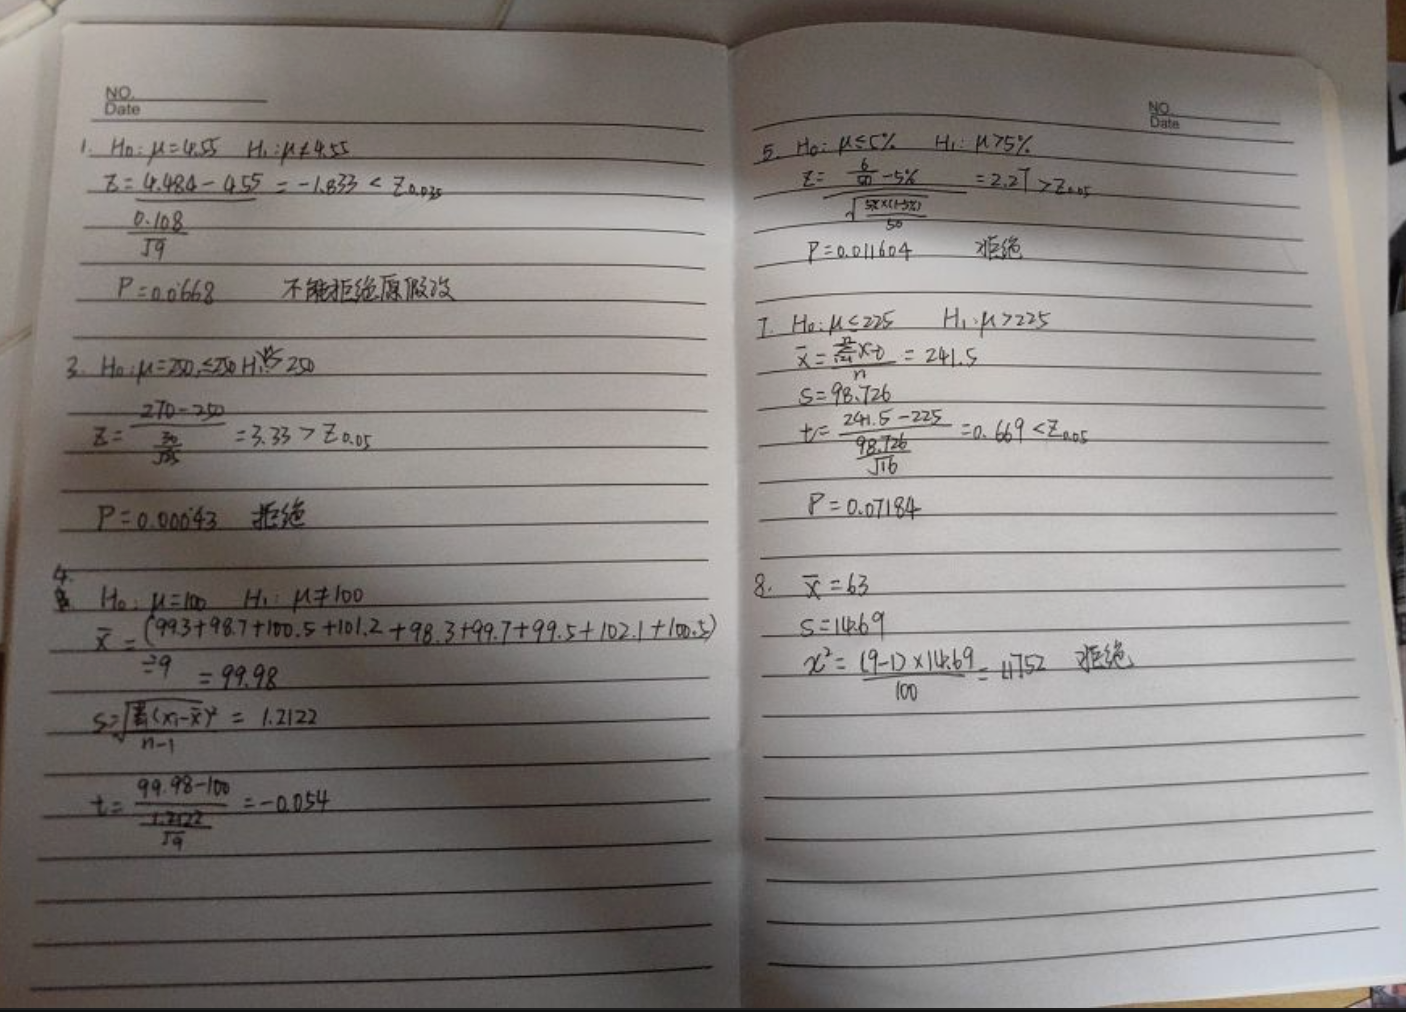 NO.
Date
1. H₀: μ=4.55 H₁: μ≠4.55
Z= (4.484-4.55)/(0.108/√9) = -1.833 < Z0.025
P=0.0668 不能拒绝原假设
3. H₀: μ=250, ≤250 H₁ 250
Z= (270-250)/(30/√25) = 3.33 > Z0.05
P=0.00043 拒绝
4.
H₀: μ=100 H₁: μ≠100
x̄ = (99.3+98.7+100.5+101.2+98.3+99.7+99.5+102.1+100.5)
÷9 = 99.98
S=√((xᵢ-x̄)²/(n-1)) = 1.2122
t= (99.98-100)/(1.2122/√9) = -0.054
NO.
Date
5. H₀: μ≤5% H₁: μ>5%
Z= (6/50 -5%)/√(5%×(1-5%)/50) = 2.27 > Z0.05
P=0.011604 拒绝
7. H₀: μ≤225 H₁: μ>225
x̄ = /n = 241.5
S=98.726
t= (241.5-225)/(98.726/√16) = 0.669 < Z0.05
P=0.07184
8. x̄=63
S=14.69
x²= (9-1)×14.69/100 = 1.1752 拒绝